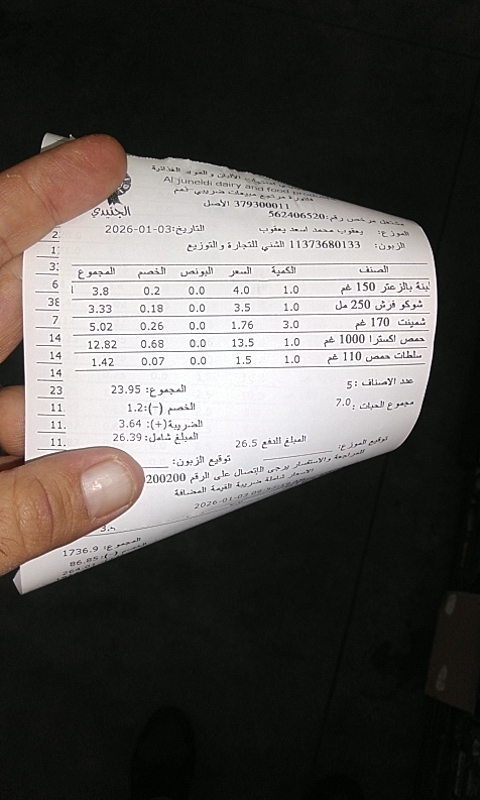 الألبان و المواد الغذائية
Al juneidi dairy and food
فاتورة مرتجع مبيعات ضريبي -نعم
379300011 الأصل
الجنيدي
مشتغل مرخص رقم: 562406520
الموزع: يعقوب محمد اسعد يعقوب
التاريخ: 2026-01-03
الزبون: 11373680133 الشني للتجارة والتوزيع
الصنف الكمية السعر البونص الخصم المجموع
لبنة بالزعتر 150 غم 1.0 4.0 0.0 0.2 3.8
شوكو فرش 250 مل 1.0 3.5 0.0 0.18 3.33
شمينت 170 غم 3.0 1.76 0.0 0.26 5.02
حمص اكسترا 1000 غم 1.0 13.5 0.0 0.68 12.82
سلطات حمص 110 غم 1.0 1.5 0.0 0.07 1.42
عدد الاصناف: 5
المجموع: 23.95
مجموع الحبات: 7.0
الخصم (-): 1.2
الضريبة(+): 3.64
المبلغ شامل: 26.39
المبلغ للدفع 26.5
توقيع الموزع:
توقيع الزبون:
للمراجعة والاستفسار يرجى الإتصال على الرقم 200200
الاسعار شاملة ضريبة القيمة المضافة
2026-01-03
المجموع: 1736.9
الخصم (-): 86.85